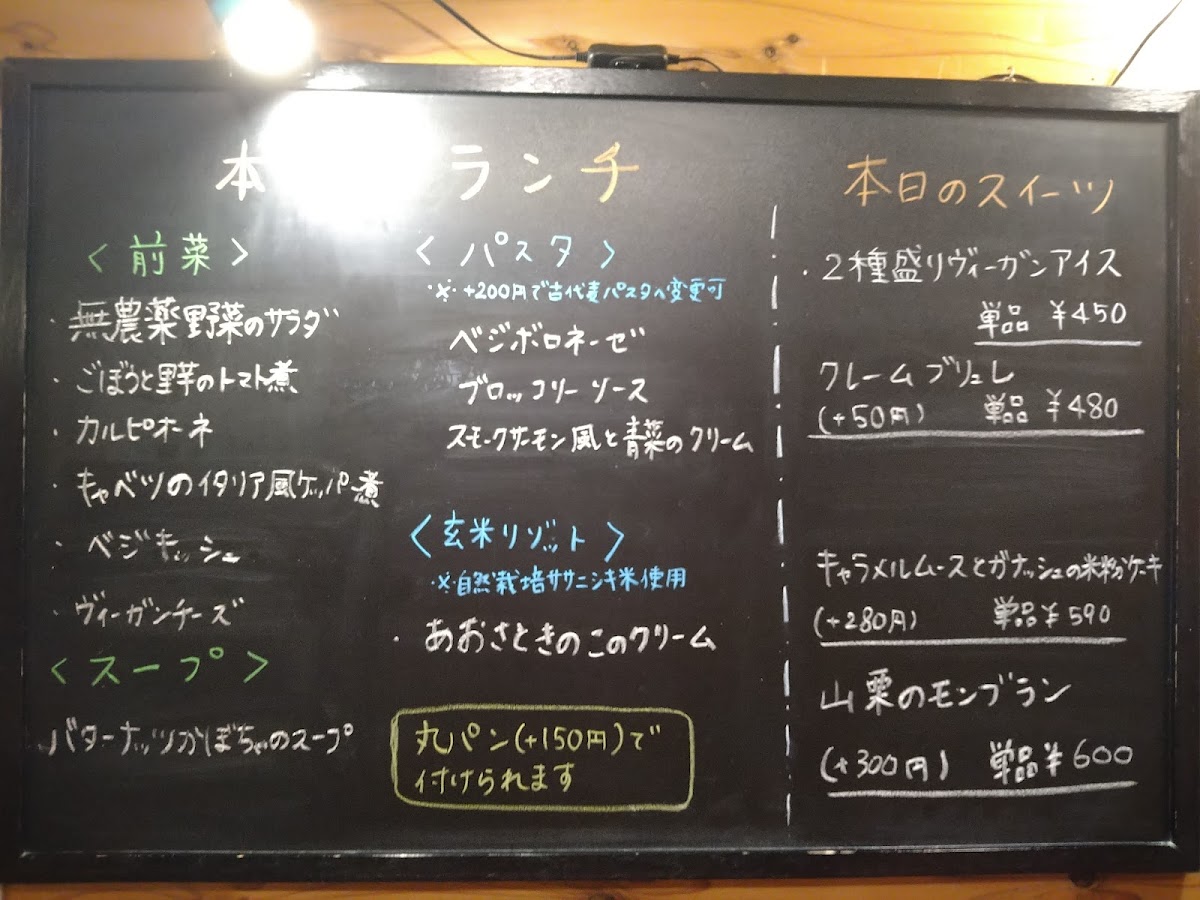 本 ランチ
<前菜>
・無農薬野菜のサラダ
・ごぼうと里芋のトマト煮
・カルピオーネ
・キャベツのイタリア風ケッパー煮
・ベジキッシュ
・ヴィーガンチーズ
<スープ>
バターナッツかぼちゃのスープ
<パスタ>
※+200円で古代麦パスタへ変更可
ベジボロネーゼ
ブロッコリーソース
スモークサーモン風と青菜のクリーム
<玄米リゾット>
※自然栽培ササニシキ米使用
・あおさときのこのクリーム
丸パン(+150円)で
付けられます
本日のスイーツ
・2種盛りヴィーガンアイス
単品 ¥450
クレームブリュレ
(+50円) 単品 ¥480
キャラメルムースとガナッシュの米粉ケーキ
(+280円) 単品¥590
山栗のモンブラン
(+300円) 単品¥600